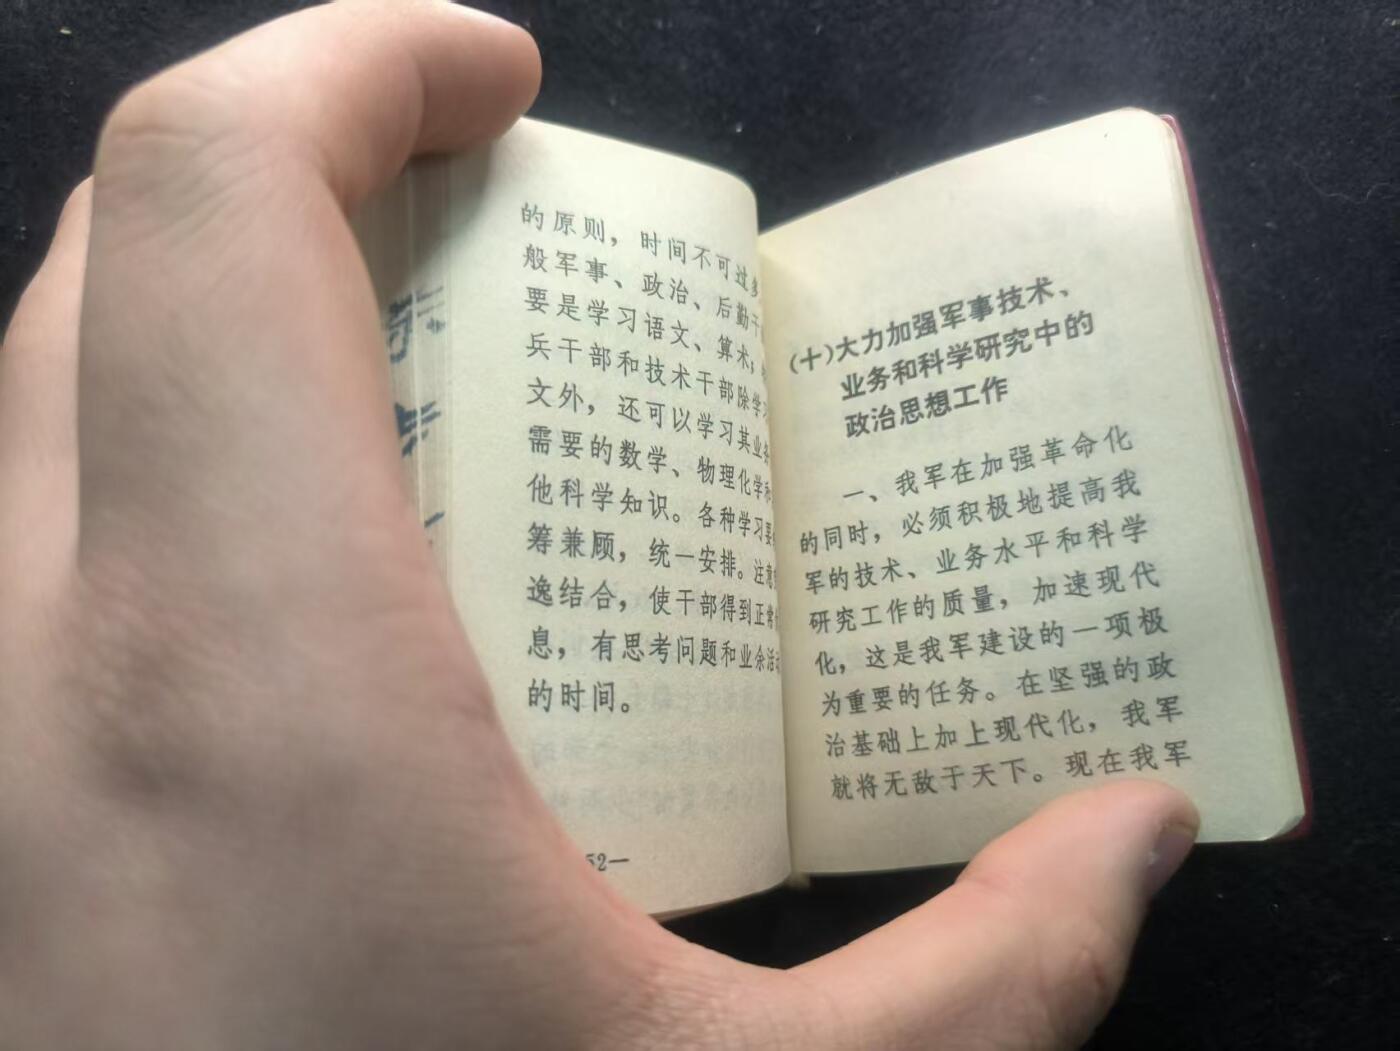 的原则，时间不可过多
般军事、政治、后勤干
要是学习语文、算术；
兵干部和技术干部除学习
文外，还可以学习其业务
需要的数学、物理化学和
他科学知识。各种学习要
筹兼顾，统一安排。注意
逸结合，使干部得到正常
息，有思考问题和业余活动
的时间。
52—
(十)大力加强军事技术、
业务和科学研究中的
政治思想工作
一、我军在加强革命化
的同时，必须积极地提高我
军的技术、业务水平和科学
研究工作的质量，加速现代
化，这是我军建设的一项极
为重要的任务。在坚强的政
治基础上加上现代化，我军
就将无敌于天下。现在我军